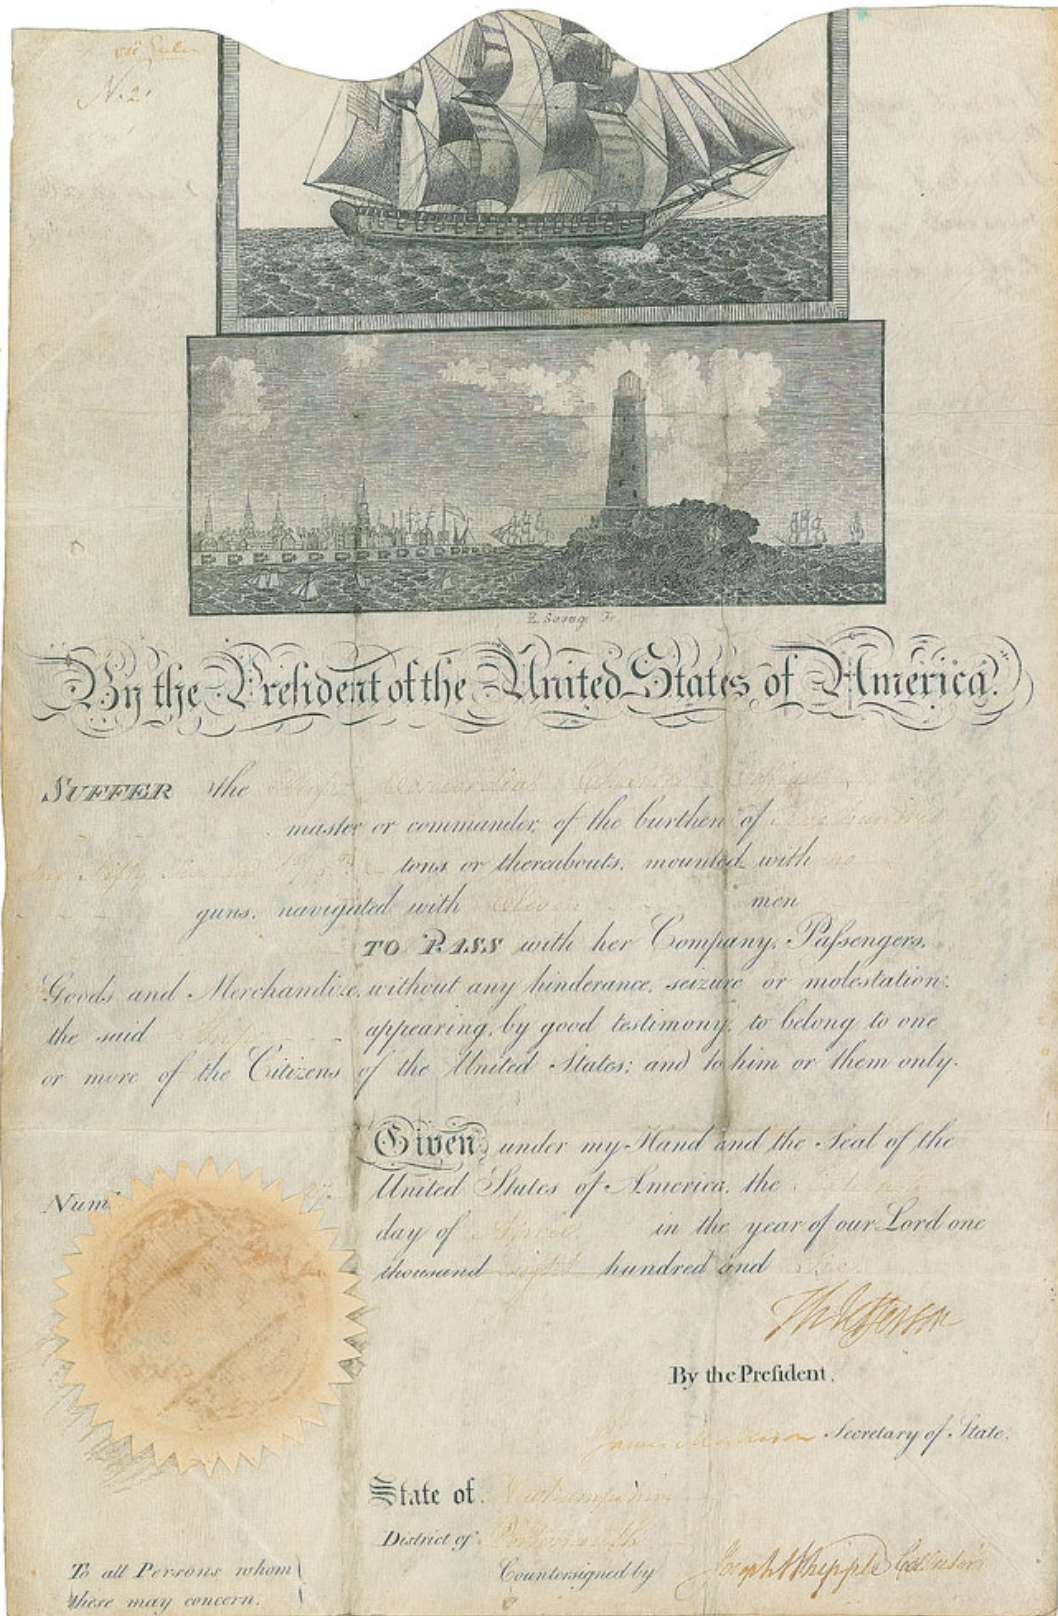 N. 2.
E. Savage Fe.
By the Preſident of the United States of America.
SUFFER the Ship Concordia
master or commander, of the burthen of
Fifty tons or thereabouts, mounted with no
guns, navigated with Eleven men
TO PASS with her Company, Paſsengers,
Goods and Merchandize, without any hinderance, seizure or molestation;
the said Ship appearing, by good testimony, to belong to one
or more of the Citizens of the United States; and to him or them only.
Given, under my Hand and the Seal of the
United States of America, the
Num
day of April in the year of our Lord one
thousand eight hundred and
Th Jefferson
By the Preſident,
James Madison Secretary of State.
State of Newhampshire
District of Portsmouth
Countersigned by Joseph Whipple Collector
To all Persons whom
these may concern.